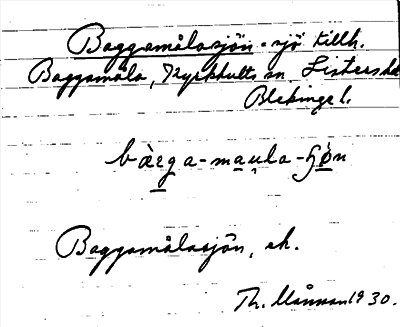 Baggamålasjön - sjö tillh.
Baggamåla, Kyrkhults sn, Listers hd
Blekinge l.
bàrga-maula-ʃön
Baggamålasjön, ek.
Th. Månsson 1930.